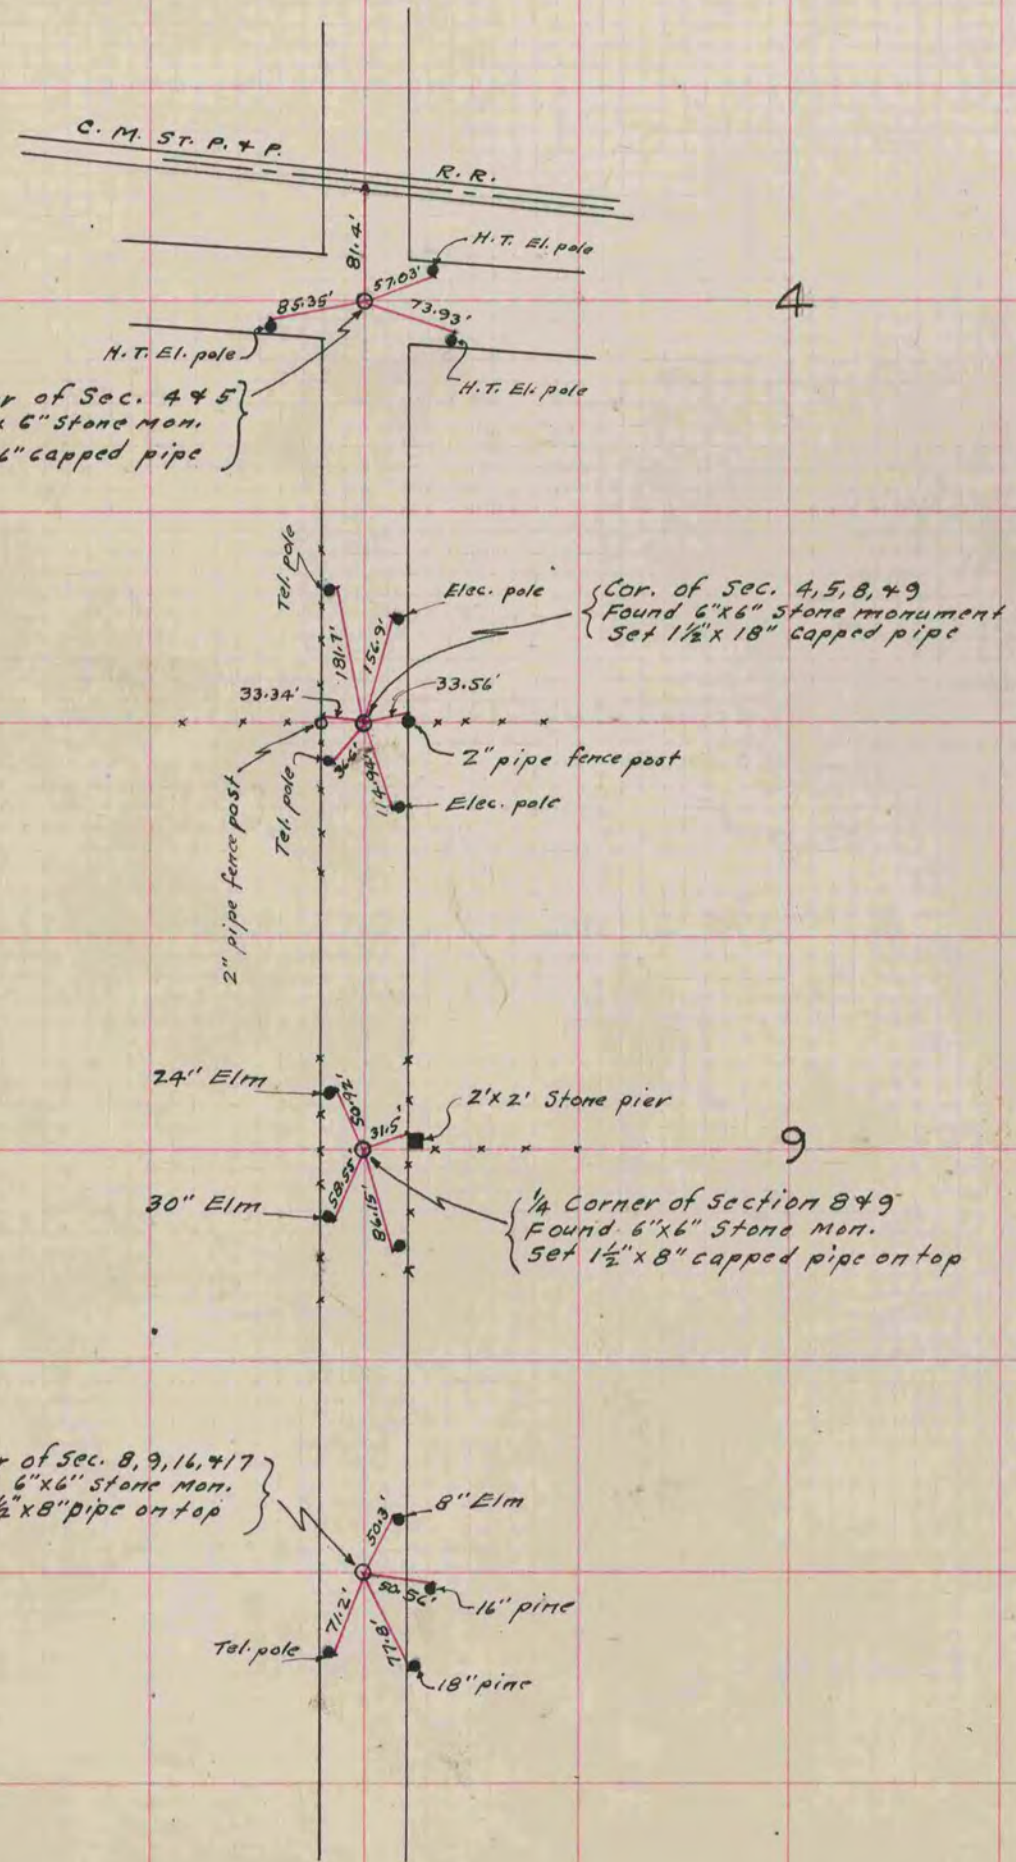 C. M. ST. P. & P. R. R.
81.4'
H. T. El. pole
57.03'
85.35'
73.93'
4
H. T. El. pole
H. T. El. pole
r of Sec. 4 & 5
x 6" Stone Mon.
6" capped pipe
Tel. pole
Elec. pole
Cor. of Sec. 4, 5, 8, & 9
Found 6"x6" Stone monument
Set 1½"x 18" capped pipe
181.7'
156.9'
33.34'
33.56'
2" pipe fence post
2" pipe fence post
Tel. pole
114.94'
Elec. pole
24" Elm
50.92'
2'x2' Stone pier
31.5'
9
30" Elm
58.55'
86.15'
¼ Corner of Section 8 & 9
Found 6"x6" Stone Mon.
Set 1½"x 8" capped pipe on top
r of Sec. 8, 9, 16, & 17
6"x6" Stone Mon.
½"x8" pipe on top
50.3'
8" Elm
50.56'
16" pine
71.2'
77.8'
Tel. pole
18" pine